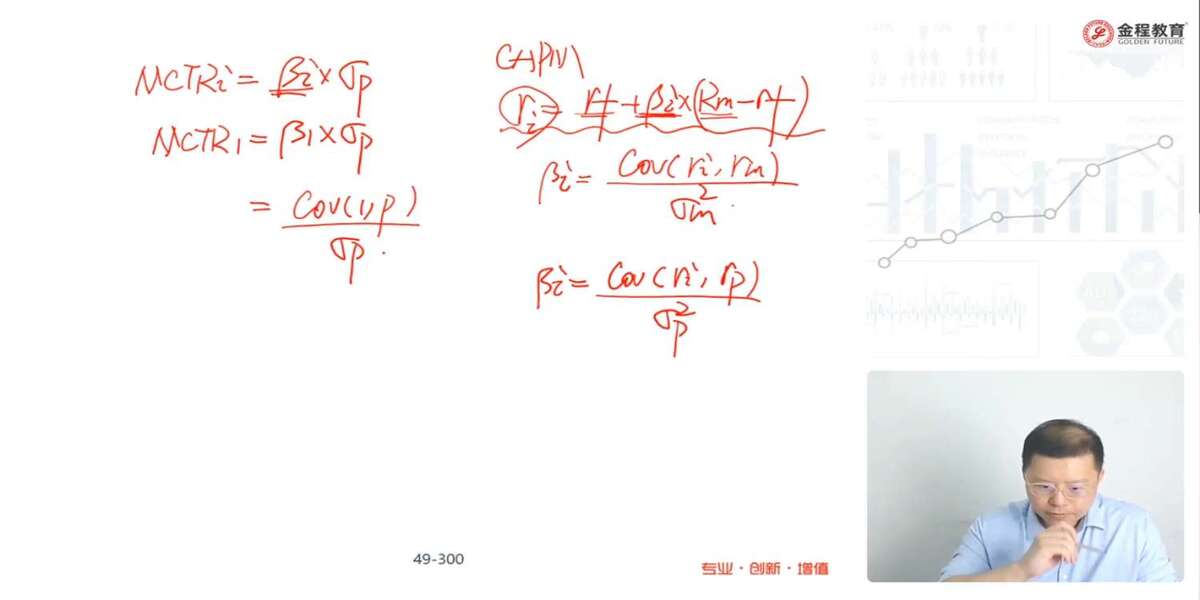 MCTRi = βi × σp
MCTR1 = β1 × σp
= Cov(1,p) / σp
CAPM
ri = rf + βi × (Rm - rf)
βi = Cov(ri, rm) / σm²
βi = Cov(ri, rp) / σp²
金程教育
GOLDEN FUTURE
49-300
专业·创新·增值